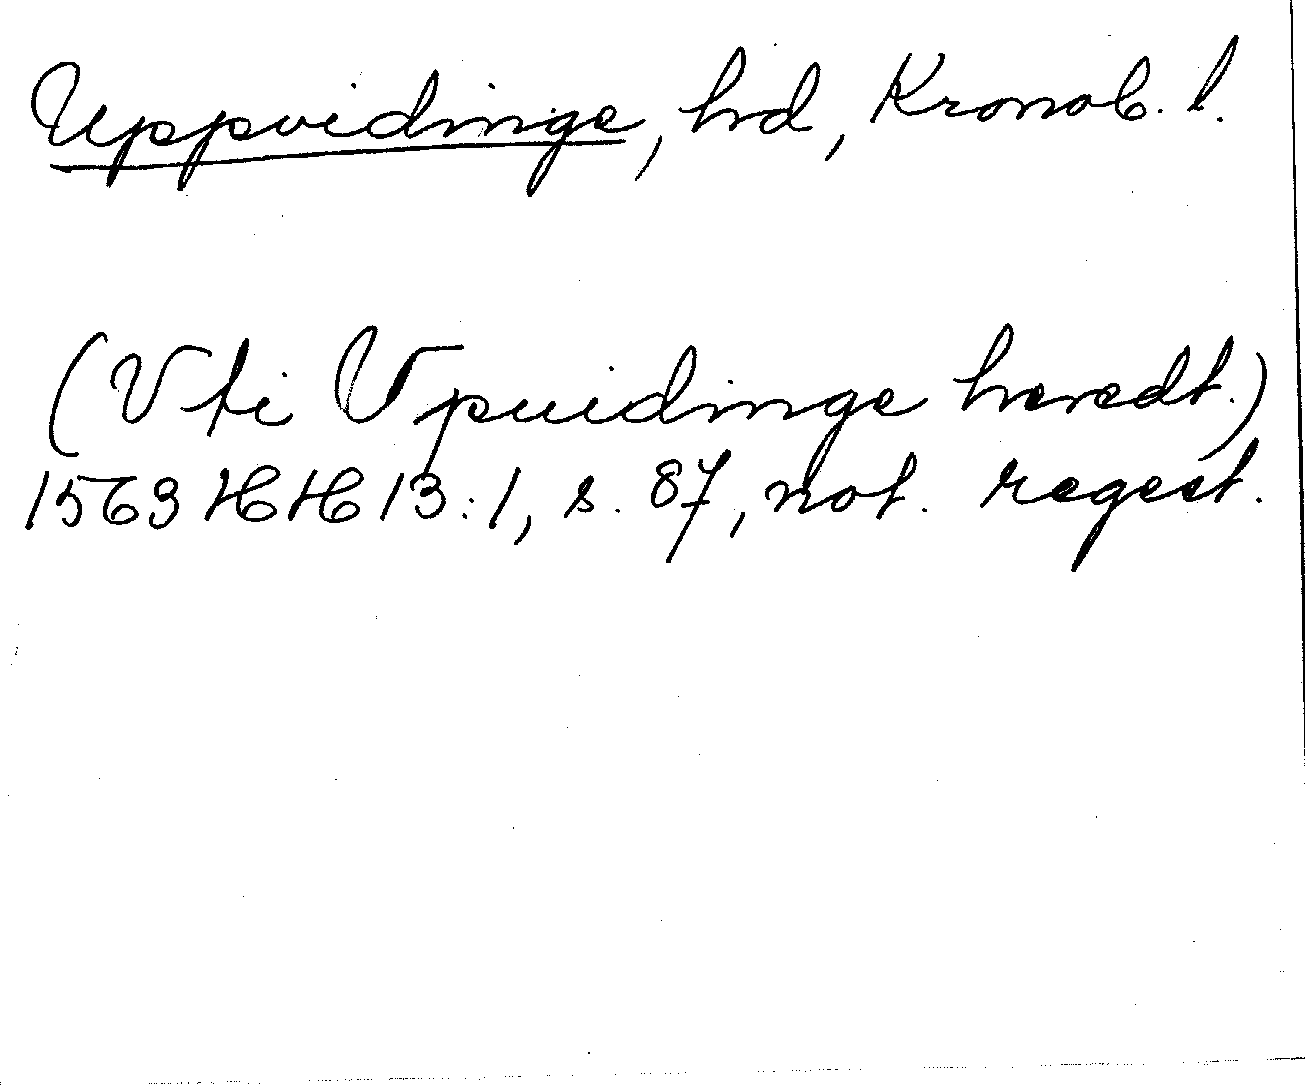 Uppvidinge, hd, Kronob. l.
(Vti Vpuidinge heredt.)
1563 HH 13:1, s. 87, not. regest.